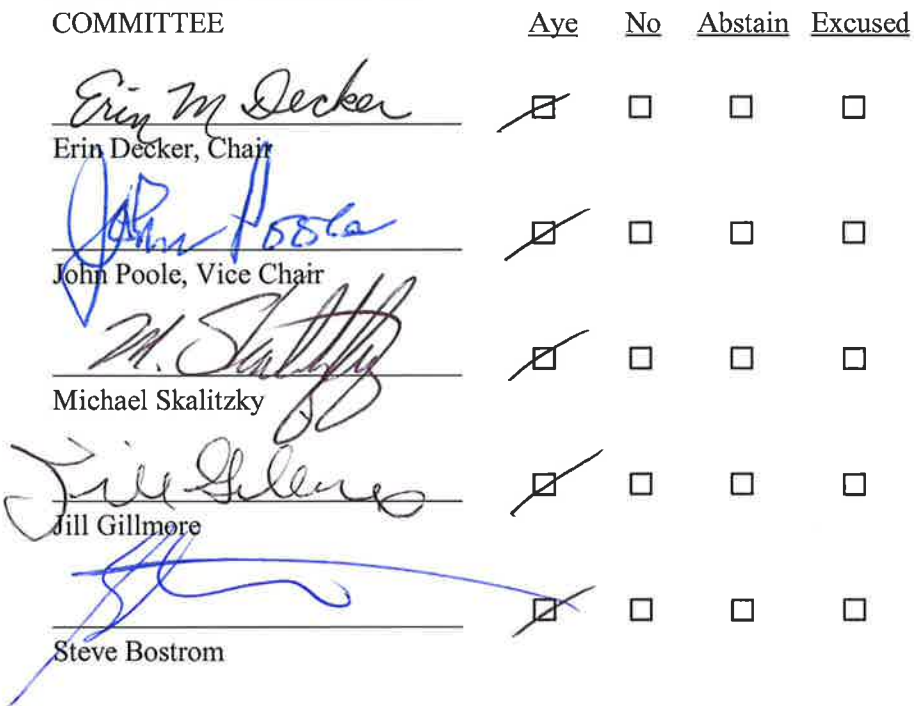 COMMITTEE Aye No Abstain Excused
Erin M Decker
Erin Decker, Chair
John Poole
John Poole, Vice Chair
M. Skalitzky
Michael Skalitzky
Jill Gillmore
Jill Gillmore
Steve Bostrom